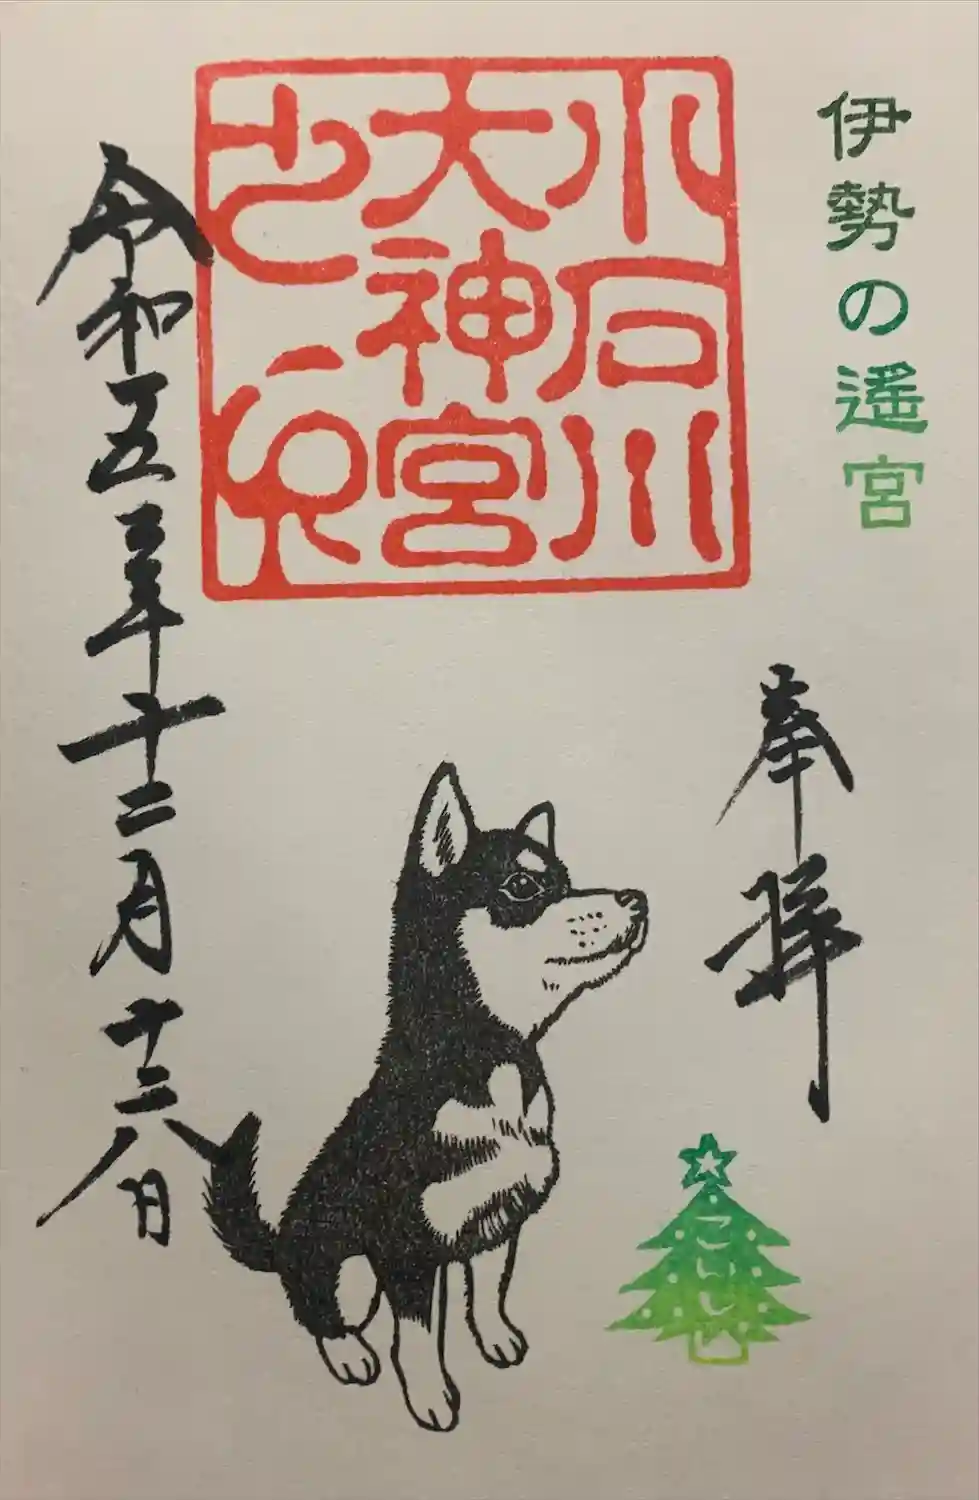 伊勢の遙宮
奉拝
小石川
大神宮
之印
令和五年十二月十二八日